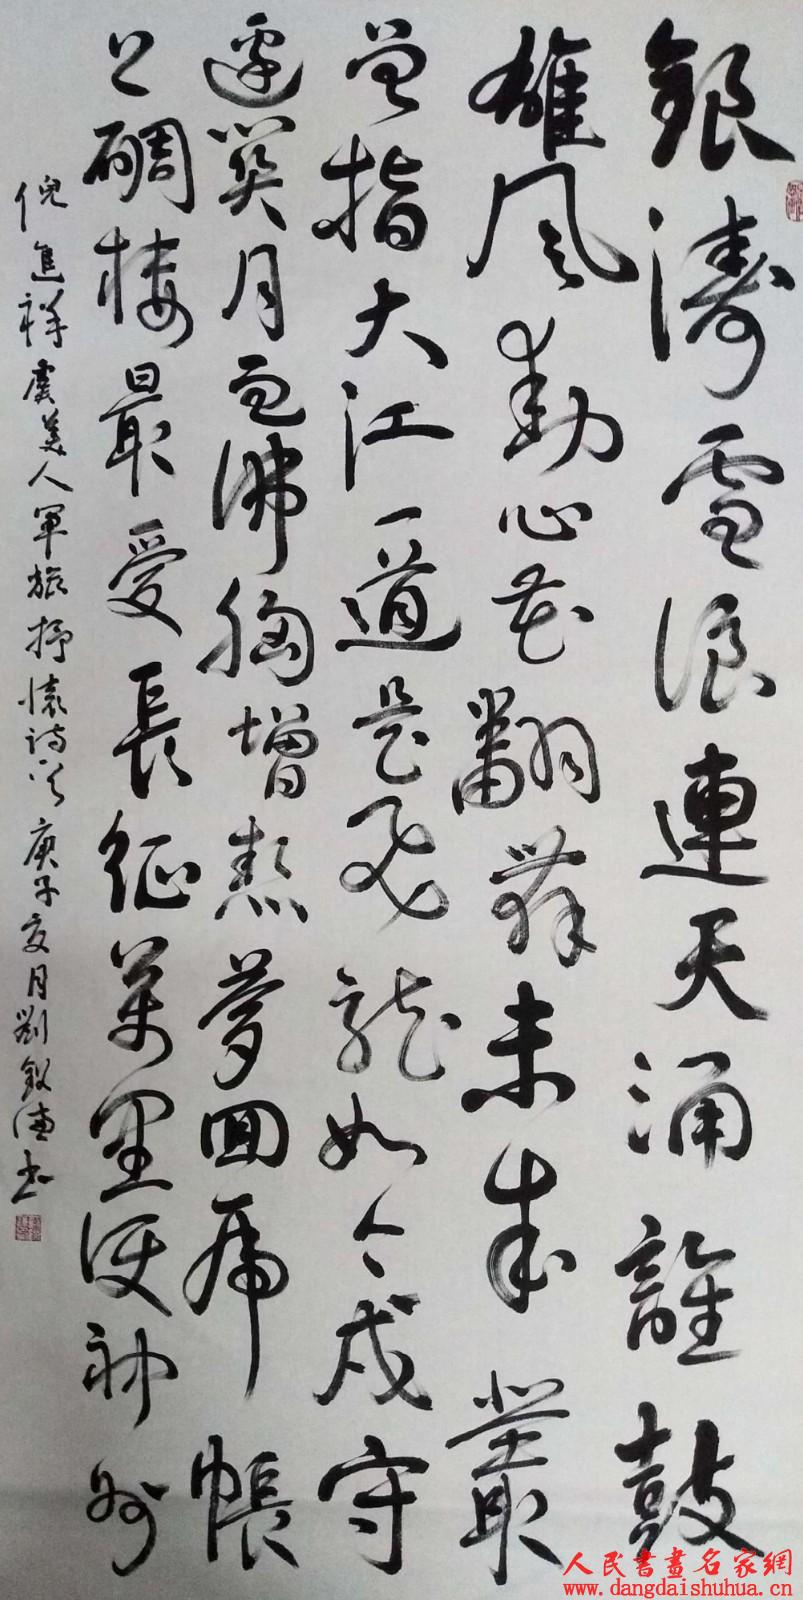 銀濤雪浪連天涌誰鼓
雄風動心花翻舞未成叢
曾指大江一道是飛龍如今戍守
邊關月血沸胸增熱夢回虎帳
上碉樓最愛長征萬里神州
倪進祥虞美人軍旅抒懷詩 庚子亥月劉德书
人民書畫名家網
www.dangdaishuhua.cn